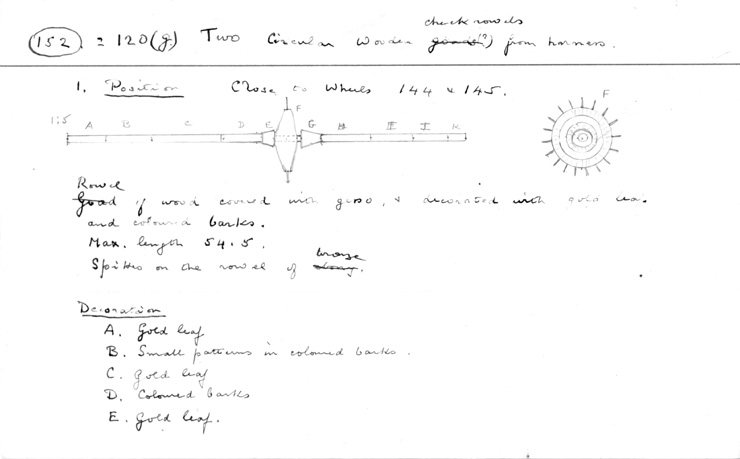 check rowels
(152). = 120(g) Two Circular Wooden goads(?) from harness.
1. Position Close to Wheels 144 & 145.
F F
1:5 A B C D E G H I J K
Rowel
Goad of wood covered with gesso, & decorated with gold leaf
and coloured barks.
Max. length 54.5.
bronze
Spikes on the rowel of
Decoration
A. Gold leaf
B. Small patterns in coloured barks.
C. Gold leaf
D. Coloured barks
E. Gold leaf.